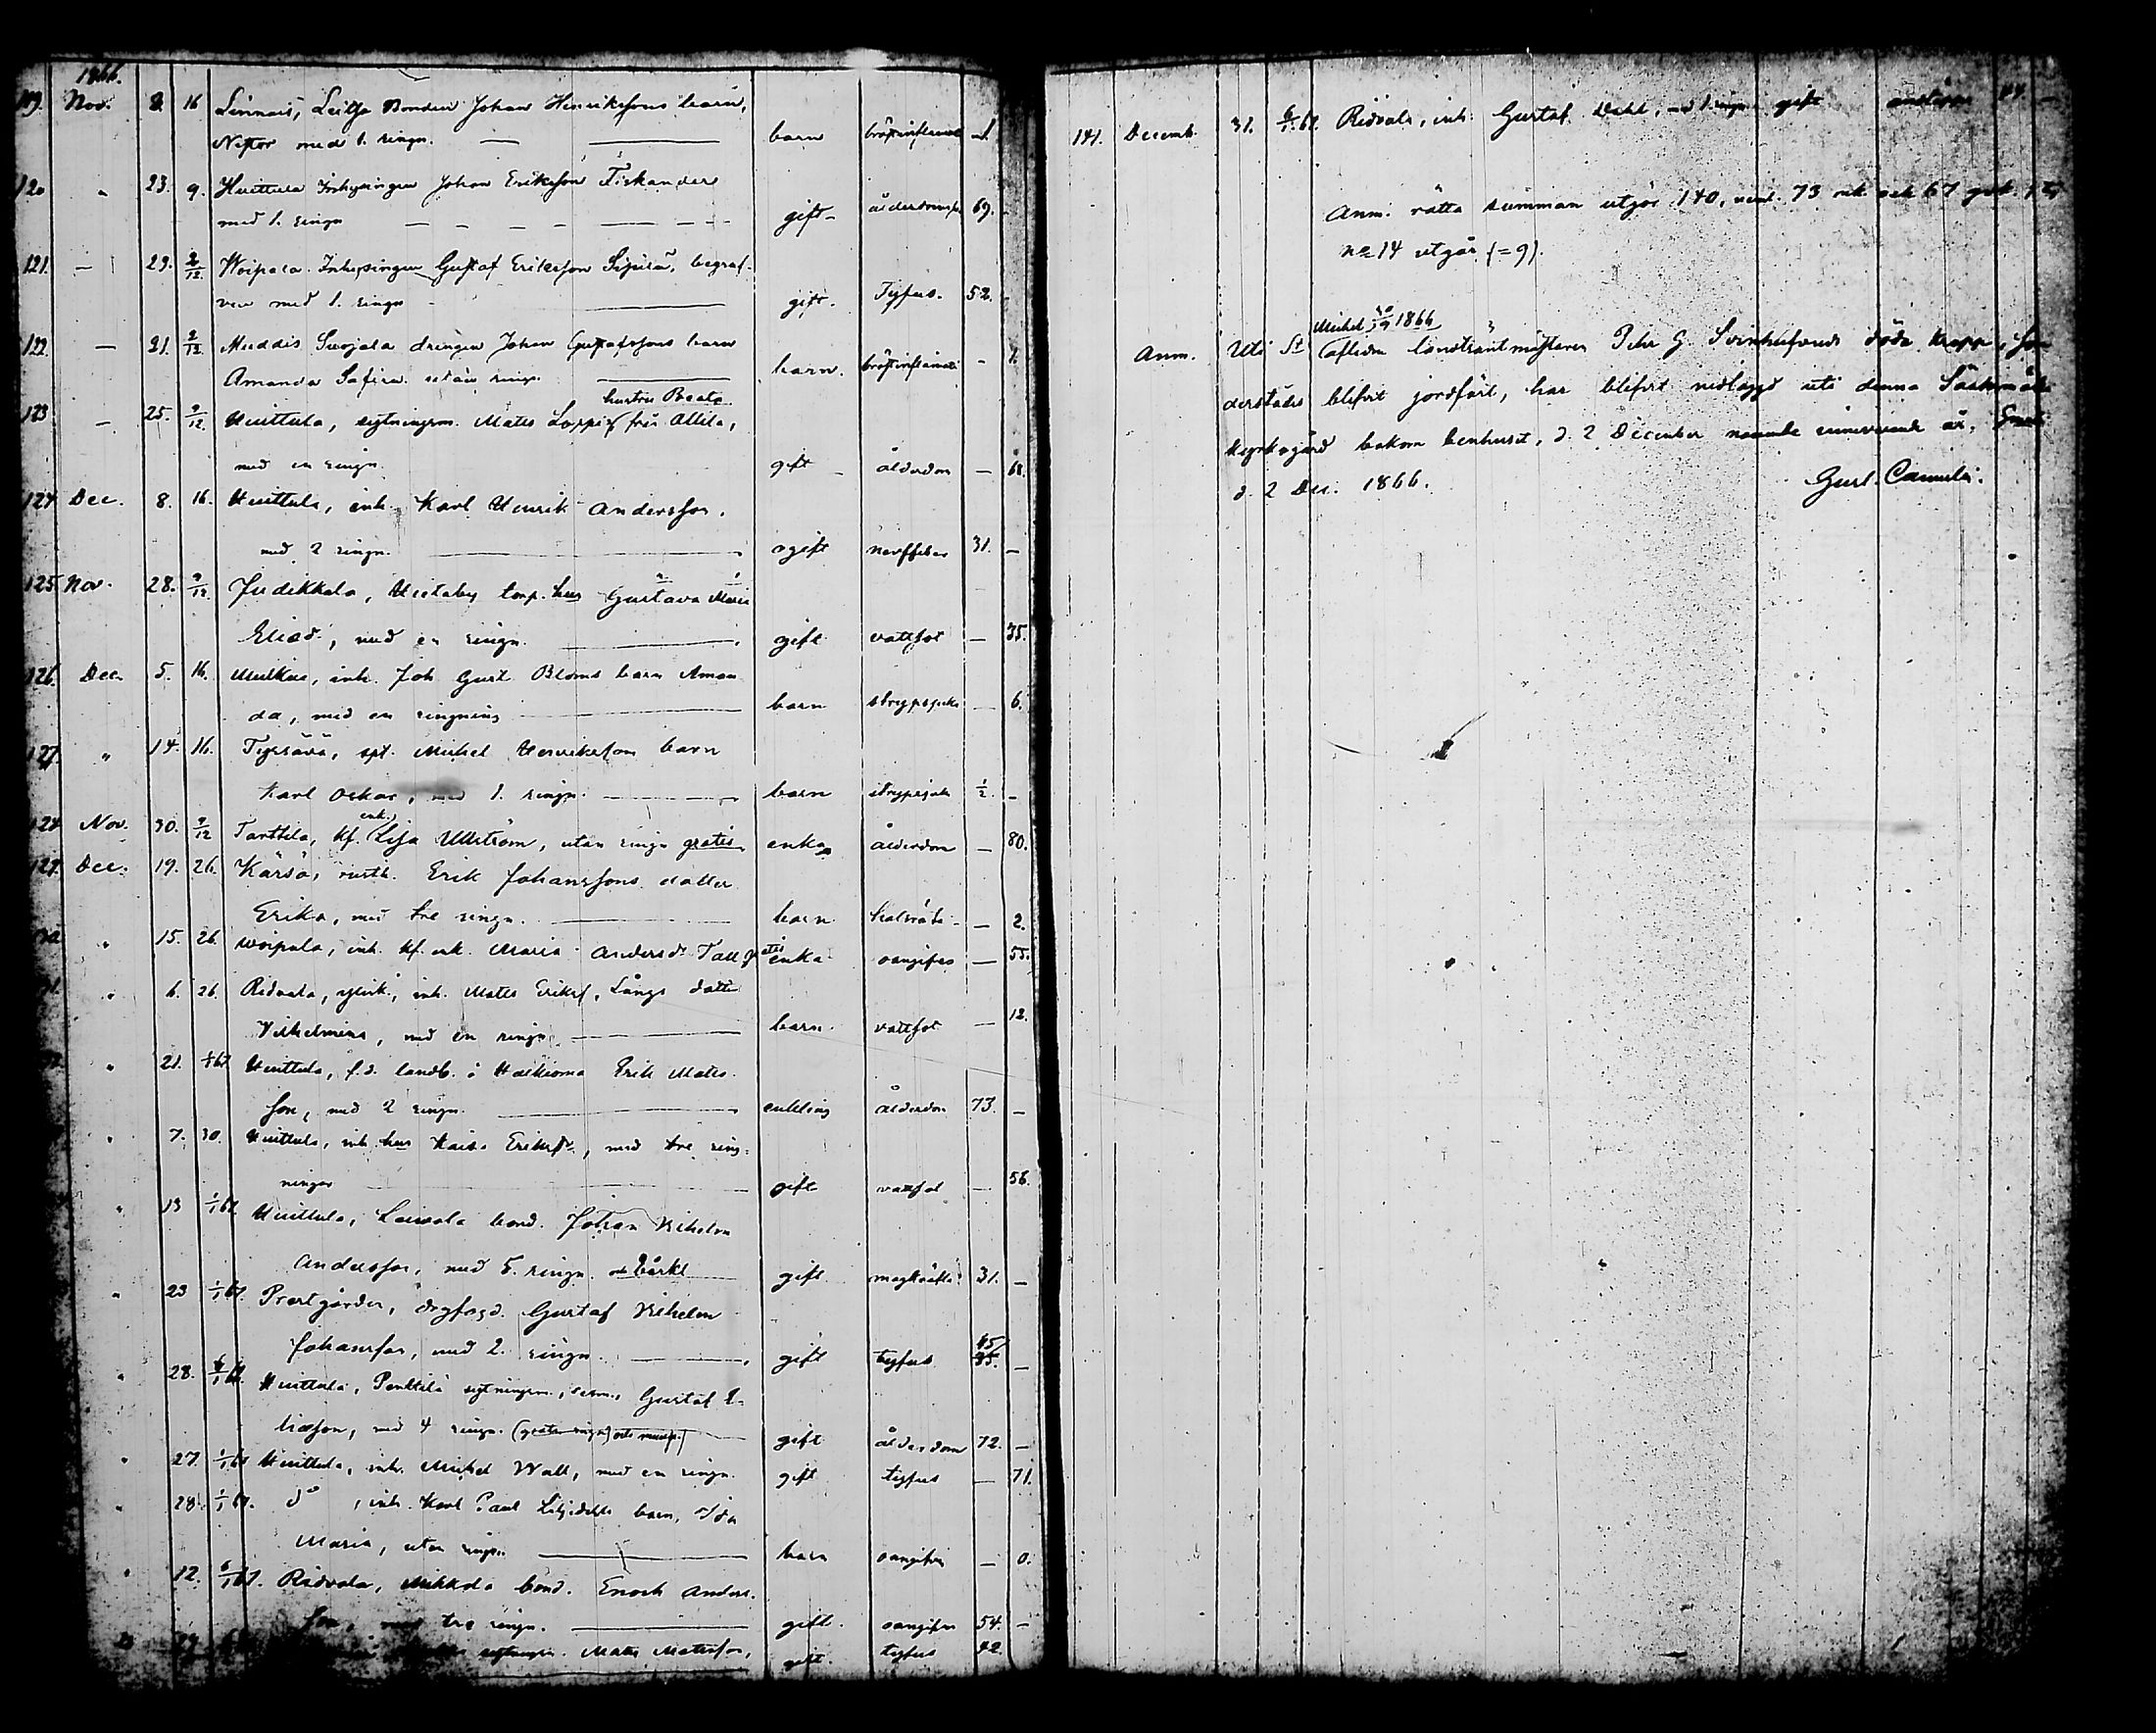 1866.
119. Nov. 8. 16 Linnais, Leilja Bonden Johan Henrikssons barn,
Nestor med 1. ringn. barn bröstinflamat
120 " 23. 9. Huittula Inhysingen Johan Eriksson Fiskander
med 1. ringn gift ålderdoms 69.
121. — 29. 2/12. Woipala Inhysingen Gustaf Eriksson Sipilä, begraf-
ven med 1. ringn gift. Tyfus. 52.
122. — 21. 2/12. Muddis Suojala drängen Johan Gustafssons barn
Amanda Safira utan ringn. barn. bröstinflamat — 1.
hustru Beata
123 — 25. 9/12. Huittula, sytningsm. Mats från Attila,
med en ringn. gift ålderdom — 68.
124 Dec. 8. 16. Huittula, inh. Karl Henrik Andersson.
med 2 ringn. ogift nervfeber 31. —
125. Nov. 28. 9/12. Judikkala, Uustaby torp. hus Gustava Maria
Eliasd., med en ringn. gift vattsot — 35.
126. Dec. 5. 16. Mulkua, inh. Joh Gust. Bloms barn Aman
da, med en ringning barn strypsjuka — 6.
127. " 14. 16. spt. Mikel Henriksson barn
Karl Oskar, med 1. ringn. barn strypsjuk ½. —
enk.
128 Nov. 30. 9/12 Tarttila, kf. Lisa Ullström, utan ringn gratis. enka ålderdom — 80.
129. Dec. 19. 26. Kärsö, rusth. Erik Johanssons dotter
Erika, med tre ringn. barn — 2.
" 15. 26. Woipala, inh. kf. enk. Maria Andersdr Tall gratis enka oangifven — 55.
" 6. 26. Ridvala, inh. Mats Erikss. Långs dotter
Vilhelmina, med en ringn. barn. vattsot — 12.
" 21. 1/1 67 Huittula, f.d. landb. å Erik Mats-
son, med 2 ringn. enkling ålderdom 73. —
" 7. 30. Huittula, inh. hus Kaisa Eriksdr., med tre ring-
ningar gift vattsot — 56.
" 13 1/1 67. Huittula, bond. Johan Vilhelm
Andersson, med 5. ringn. gift magkräfta 31. —
" 23 1/1 67. Prestgården, drgfogd. Gustaf Vilhelm
Johansson, med 2. ringn. gift tyfus 45/35. —
" 28. 6/1 67. Huittula, Penttilä sytningsm., Gustaf E-
liasson, med 4 ringn. gift ålderdom 72. —
" 27. 1/1 67 Huittula, inh. Mikel Wall, med en ringn. gift tyfus — 71.
" 28. 1/1 67. do , inh. Karl Paul barn, Ida
Maria, utan ringn. barn oangifven — 0.
" 12. 6/1 67. Ridvala, Mikkola bond. Enock Anders-
son, med tre ringn. gift. oangifven 54. —
sytningsm. Mats Matsson, gift. tyfus 42.
141. Decemb. 31. 6/1 67. Ridvala, inh. Gustaf Dahl, med 1. ringn. gift 44. —
Anm. rätta summan utgör 140, neml. 73 mk. och 67 qvk.
No 14 utgår (=9).
Michel 30/9 1866
Anm. Uti St aflidne landträntmästaren Pehr G. Svinhufvuds döda kropp, som
derstädes blifvit jordfäst, har blifvit nedlagd uti denna Sääksmäki
kyrkogård bakom benhuset, d. 2 December nämnde innevarande år.
d. 2 Dec. 1866. Gust.